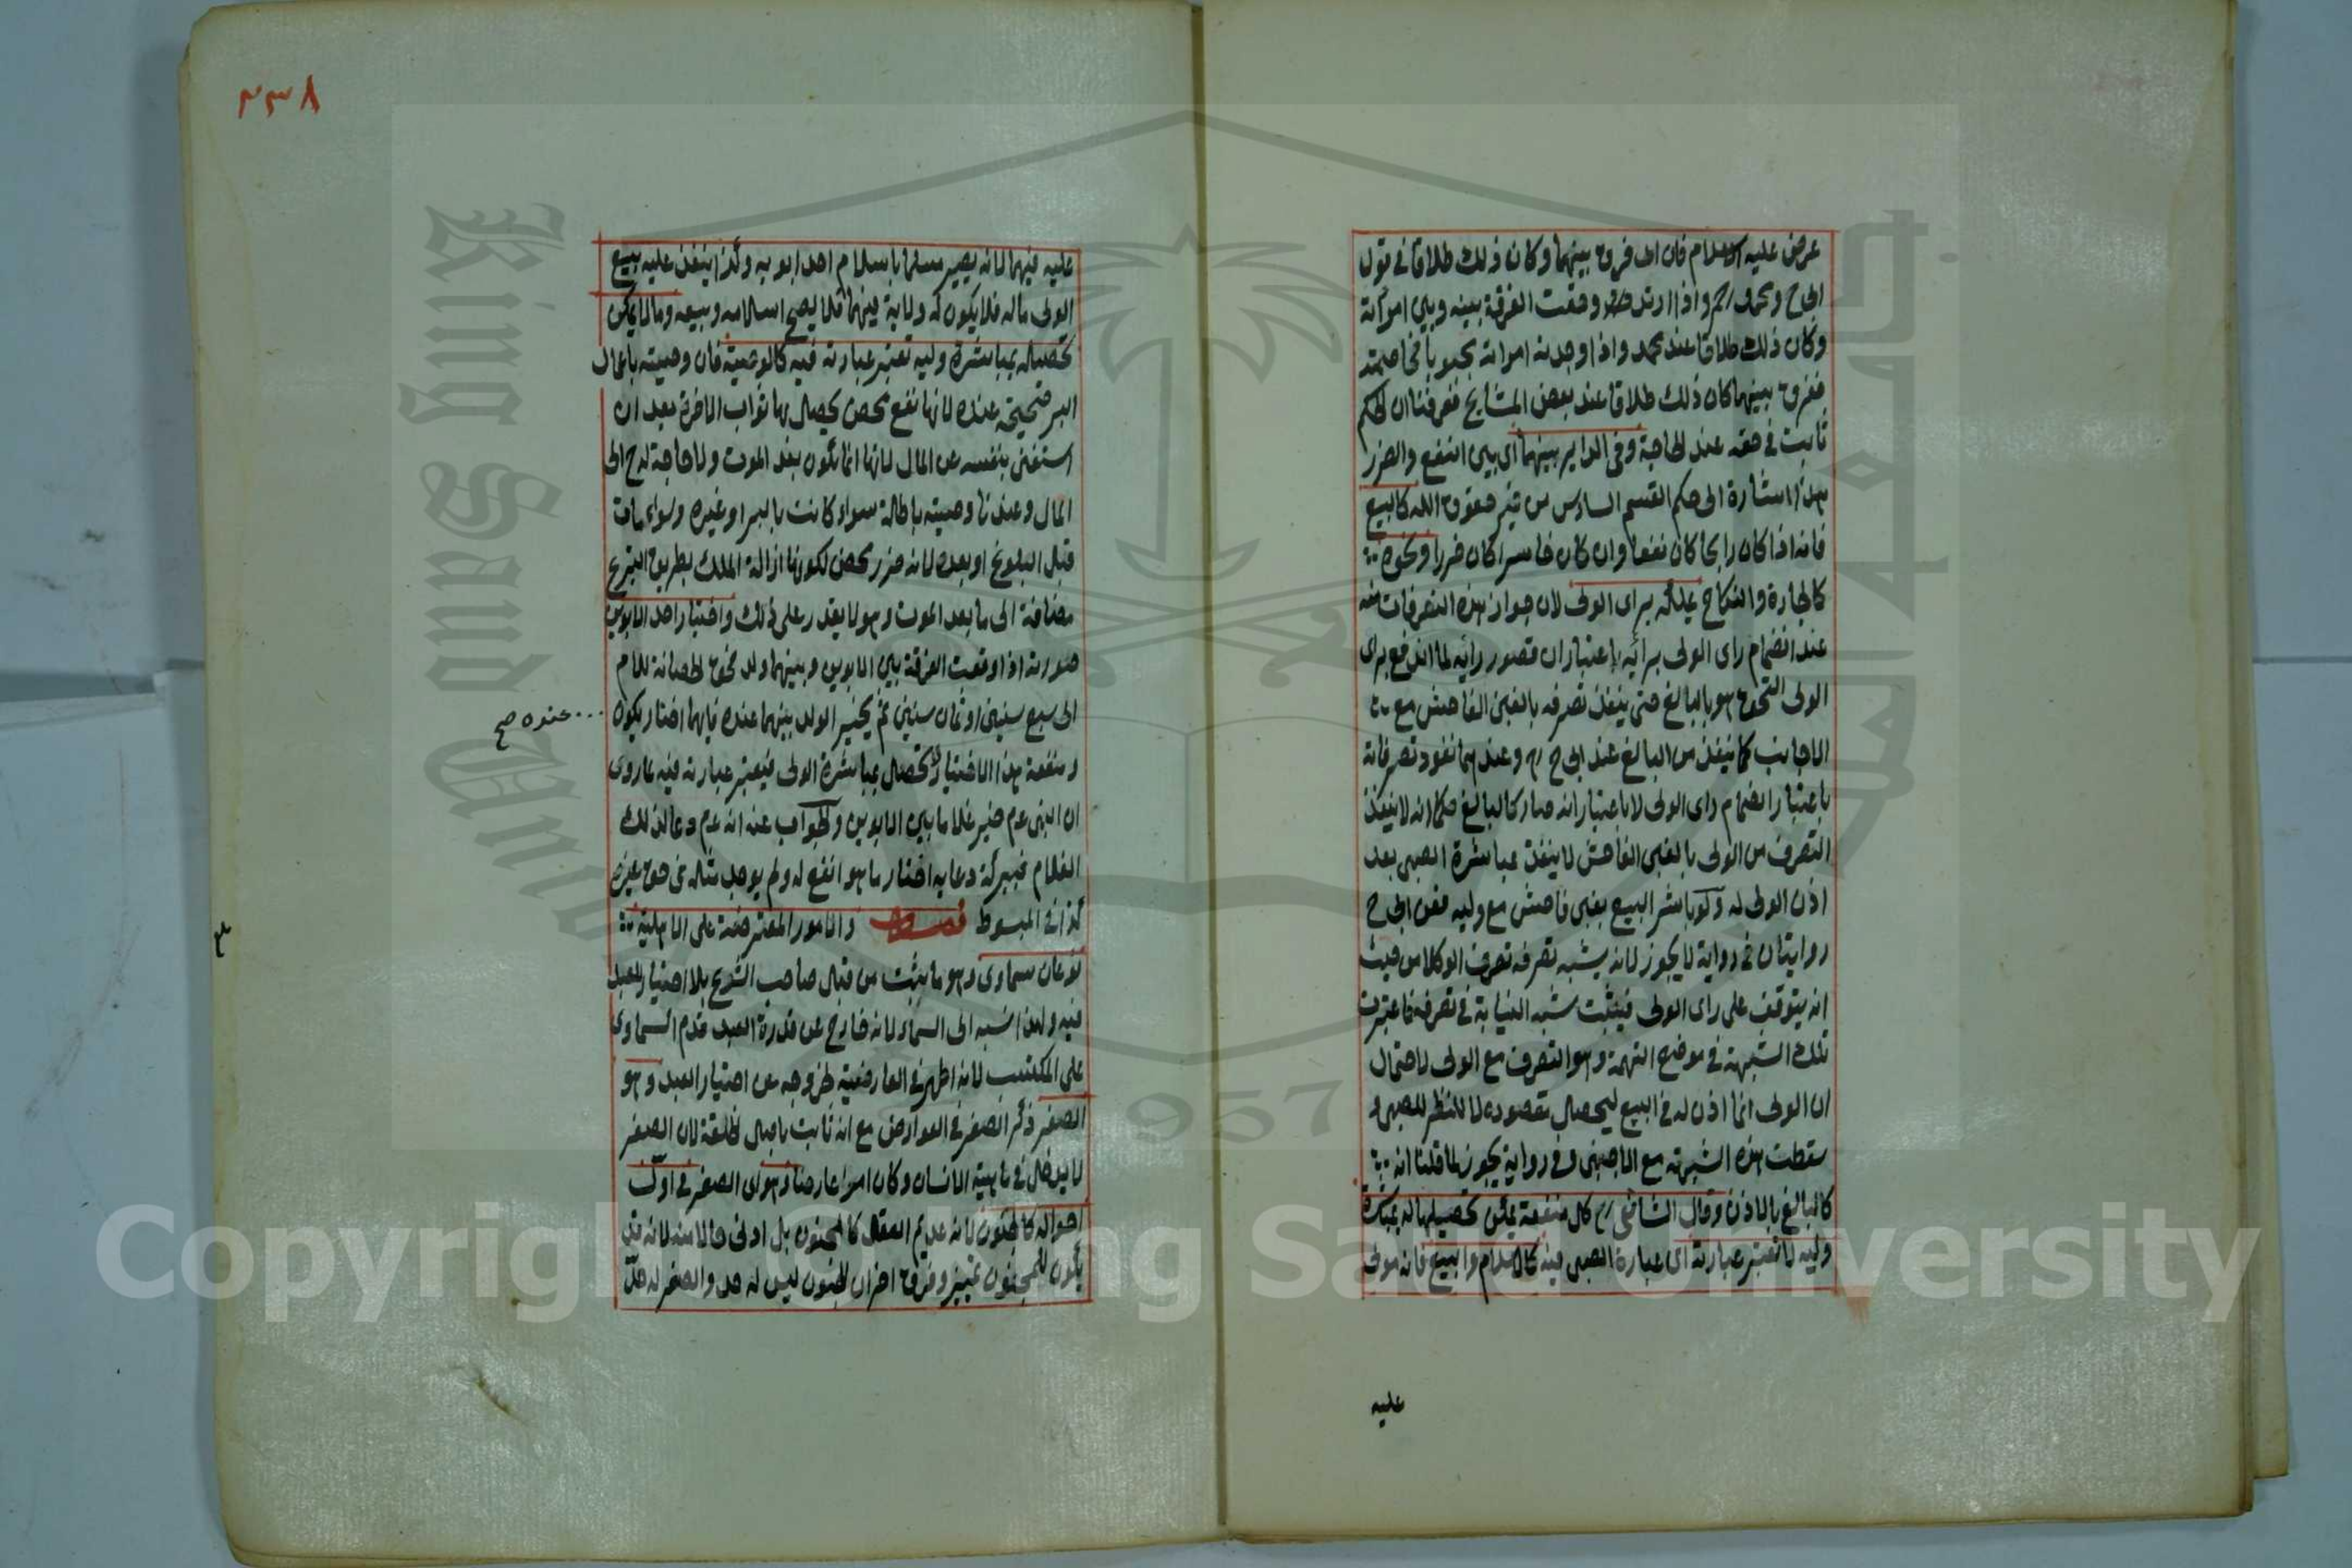 عرض عليه الاسلام فان ابى فرق بينهما وكان ذلك طلاقا في قول
ابى ح ومحمد رح واذا ارتد وقعت الفرقة بينه وبين امراته
وكان ذلك طلاقا عند محمد واذا وجدته امراته مجبوبا فخاصمته
ففرق بينهما كان ذلك طلاقا عند بعض المشايخ فعرفنا ان الحكم
ثابت في حقه عند الحاجة وفي الداير بينهما اى بين النفع والضرر
هذا اشارة الى حكم القسم السادس من غير حقوق الله كالبيع
فانه اذا كان رابحا كان نفعا وان كان خاسرا كان ضررا ونحوه
كالاجارة والنكاح يملكه براى الولى لان جواز هذه التصرفات منه
عند انضمام راى الولى برائه باعتبار ان قصور رائه لما اندفع براى
الولى التحق هو بالبالغ حتى ينفذ تصرفه بالغبن الفاحش مع
الاجانب كما ينفذ من البالغ عند ابى ح رح وعندهما نفوذ تصرفاته
باعتبار انضمام راى الولى لا باعتبار انه صار كالبالغ فكما انه لا ينفذ
التصرف من الولى بالغبن الفاحش لا ينفذ بمباشرة الصبى بعد
اذن الولى له ولو باشر البيع بغبن فاحش مع وليه فعن ابى ح
روايتان في رواية لا يجوز لانه يشبه تصرفه تصرف الوكلا من حيث
انه يتوقف على راى الولى فيثبت شبه النيابة في تصرفه فاعتبرت
تلك الشبهة في موضع التهمة وهو التصرف مع الولى لاحتمال
ان الولى انما اذن له في البيع ليحصل مقصوده لا للنظر للصبى و
سقطت هذه الشبهة مع الاجنبى وفي رواية يجوز لما قلنا انه
كالبالغ بالاذن وقال الشافعى رح كل منفعة يمكن تحصيلها له بمباشرة
وليه لا تعتبر عبارته اى عبارة الصبى فيه كالاسلام والبيع فانه مولى
عليه
٢٣٨
عليه فيهما لانه يصير مسلما باسلام احد ابويه وكذا ينفذ عليه بيع
الولى ماله فلا يكون له ولاية فيهما فلا يصح اسلامه وبيعه وما لا يمكن
تحصيله بمباشرة وليه تعتبر عبارته فيه كالوصية فان وصيته باعمال
البر صحيحة عنده لانها نفع محض يحصل بها ثواب الاخرة بعد ان
استغنى بنفسه عن المال لانها انما تكون بعد الموت ولا حاجة له ح الى
المال وعندنا وصيته باطلة سواء كانت بالبر او غيره وسواء مات
قبل البلوغ او بعده لانه ضرر محض لكونها ازالة الملك بطريق التبرع
مضافة الى ما بعد الموت وهو لا يقدر على ذلك واختيار احد الابوين
صورته اذا وقعت الفرقة بين الابوين وبينهما ولد فحق الحضانة للام
الى سبع سنين او ثمان سنين ثم يخير الولد بينهما عنده فايهما اختار يكون
عنده صح
ومنفعة هذا الاختيار لا تحصل بمباشرة الولى فيعتبر عبارته فيه لما روى
ان النبى عم خير غلاما بين الابوين والجواب عنه انه عم دعا لذلك
الغلام فببركة دعايه اختار ما هو انفع له ولم يوجد مثله في حق غيره
كذا في المبسوط فصل والامور المعترضة على الاهلية
نوعان سماوى وهو ما يثبت من قبل صاحب الشرع بلا اختيار للعبد
فيه ولهذا نسبه الى السماء لانه خارج عن قدرة العبد قدم السماوى
على المكتسب لانه اظهر في العارضية لخروجه عن اختيار العبد وهو
الصغر ذكر الصغر في العوارض مع انه ثابت باصل الخلقة لان الصغر
لا يدخل في ماهية الانسان وكان امرا عارضا وهو اى الصغر في اول
احواله كالجنون لانه عديم العقل كالمجنون بل ادنى حالا منه لانه قد
يكون للمجنون تمييز وفرق اخر ان الجنون ليس له حد والصغر له حد